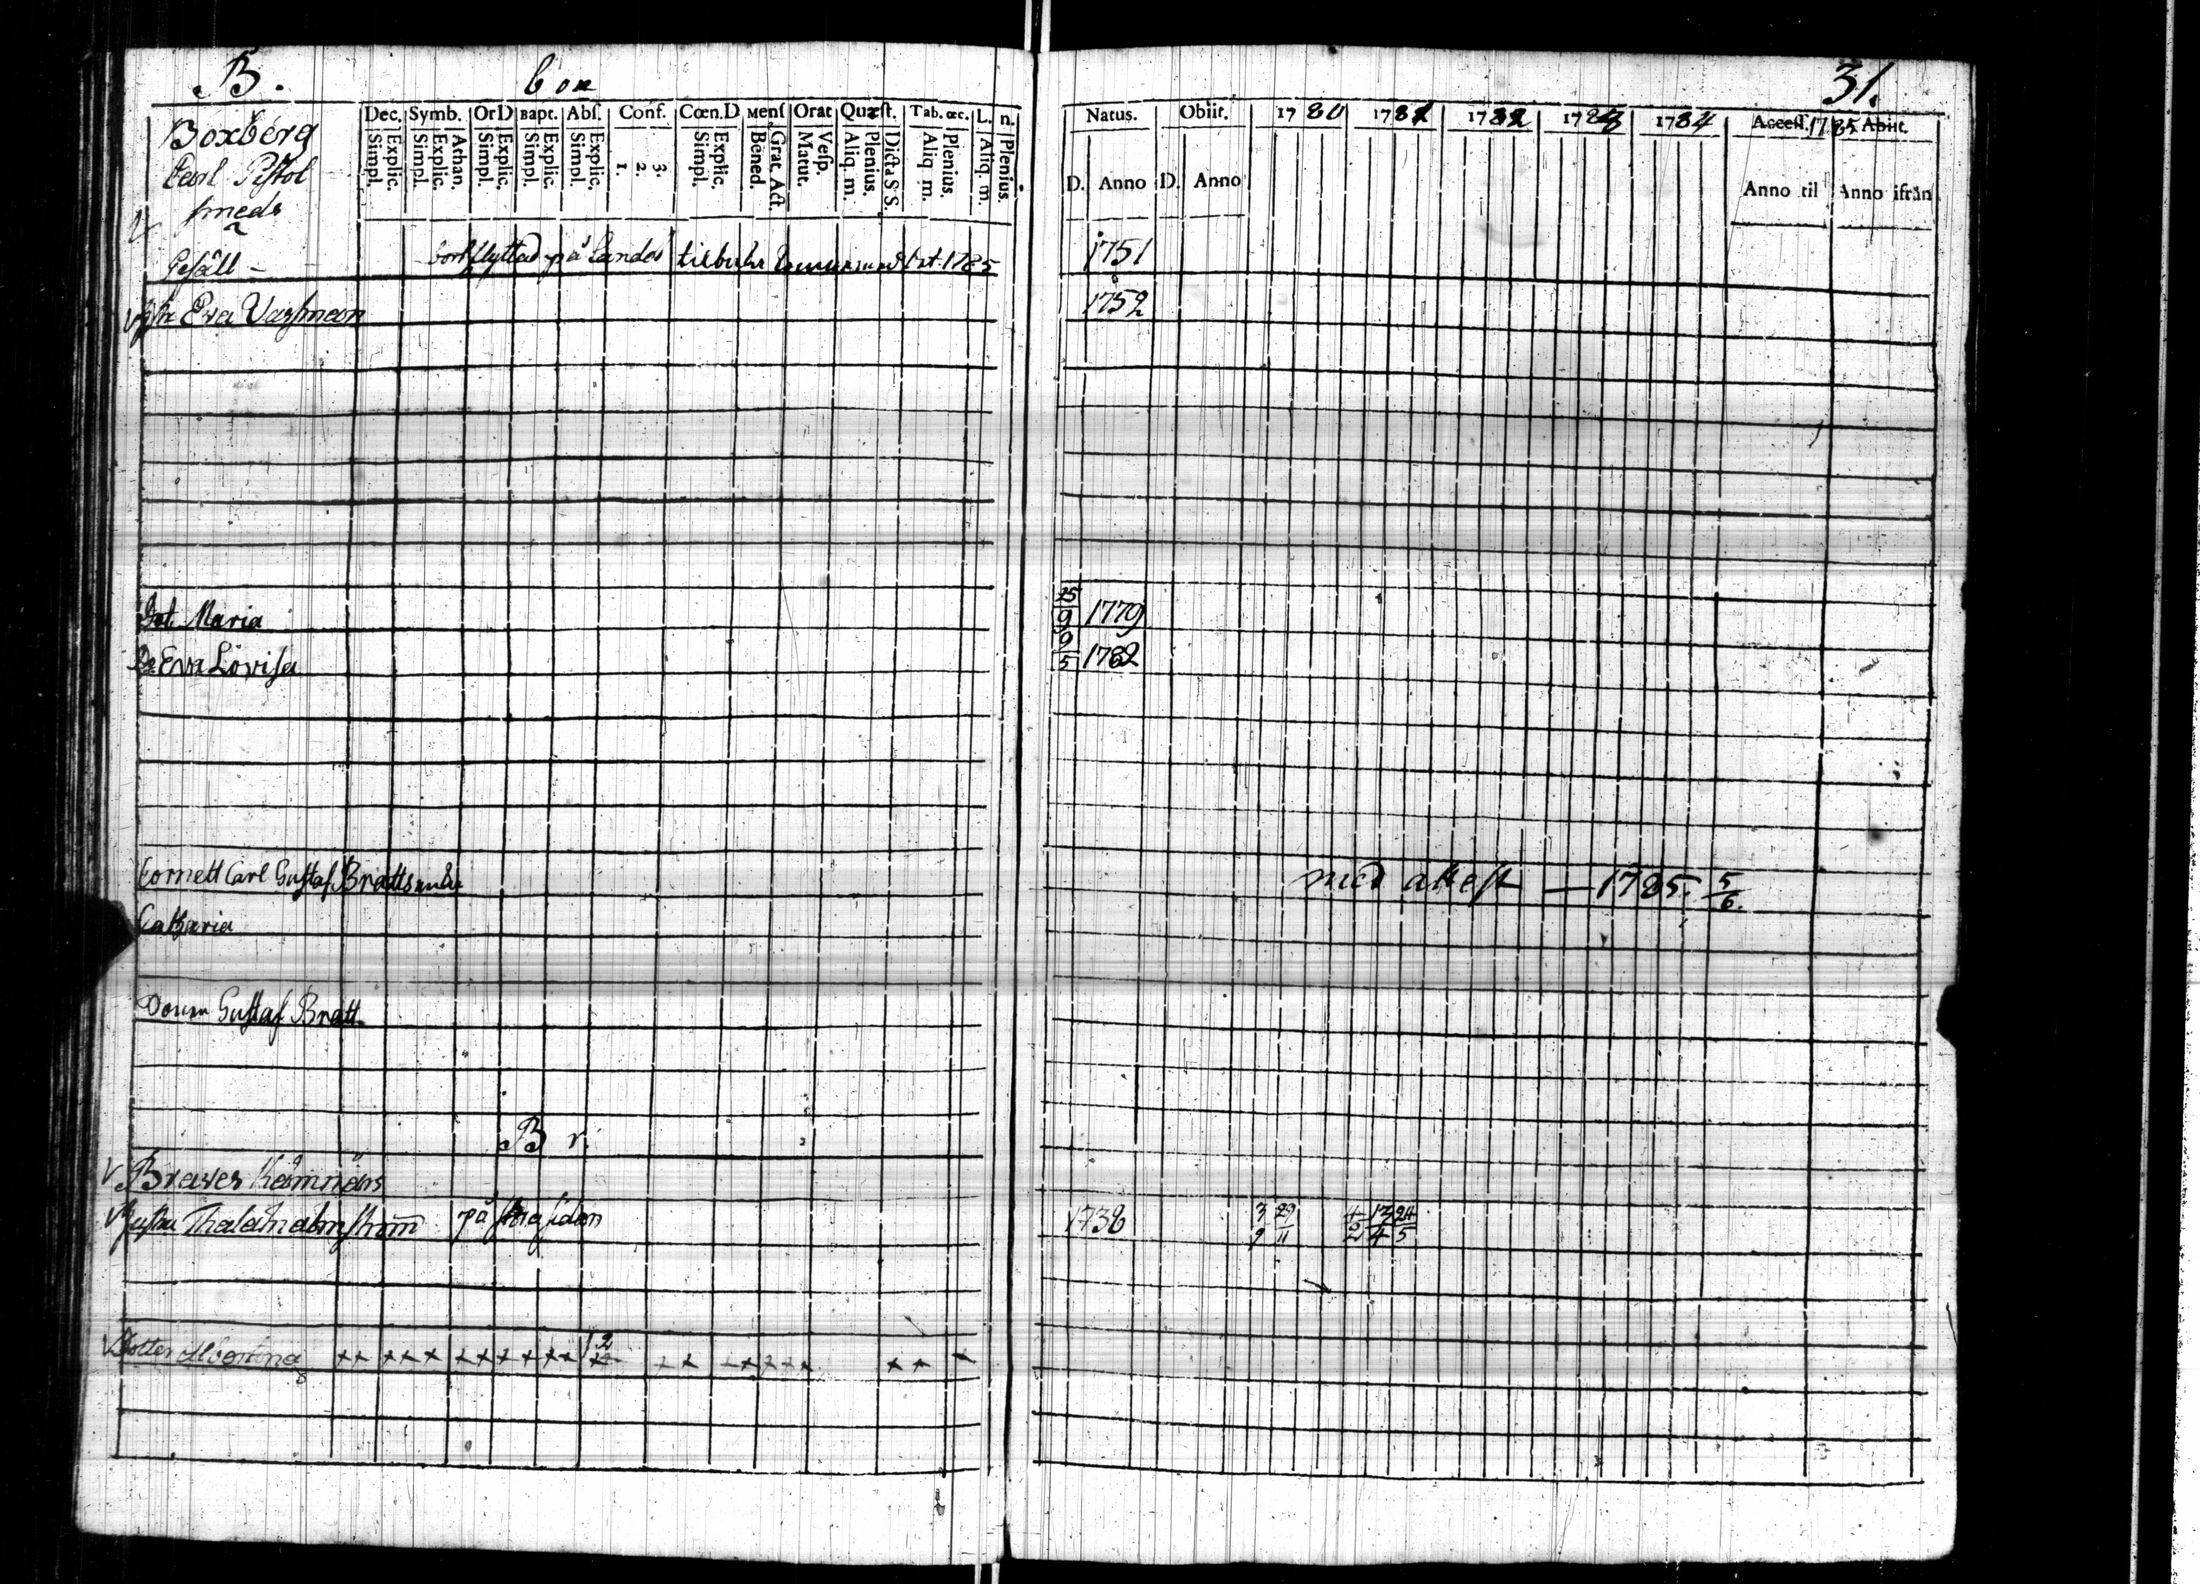 B. box 31.
Dec. Symb. Or D Bapt. Abſ. Conf. Cœn. D Menſ Orat Quæſt. Tab. œc. L. n.
Simpl. Explic. Simpl. Explic. Athan. Simpl. Explic. Simpl. Explic. Simpl. Explic. 1. 2. 3. Simpl. Explic. Bened. Grat. Act. Matut. Veſp. Aliq. m. Plenius. Dicta S S. Aliq m. Plenius. Aliq. m. Plenius.
Natus. Obiit. 1780 1781 1782 1783 1784 Acceſſ. 1785 Abiit.
D. Anno D. Anno Anno til Anno ifrån
Boxberg
Carl Piſtol
ſmeds
Geſäll - bortflyttad på Landet 1785 1751
Eva 1752
Dot. Maria 25/9 1779
Do Eva Loviſa 9/5 1782
Cornett Carl Guſtaf Bratts med atteſt — 1785. 5/6.
Catharia
Guſtaf Bratt
B r.
Brawes Kämnärs
Huſtru på ſidan 1738 3/9 29/11 4/2 13/4 24/5
Dotter Albertina